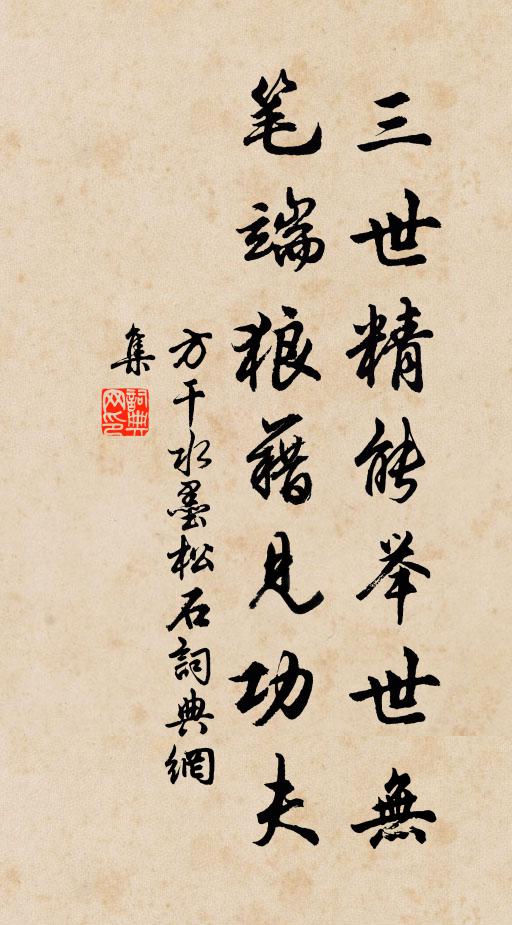 三世精能举世無
笔端狼藉見功夫
方干水墨松石詞典網
集
詞典
网印